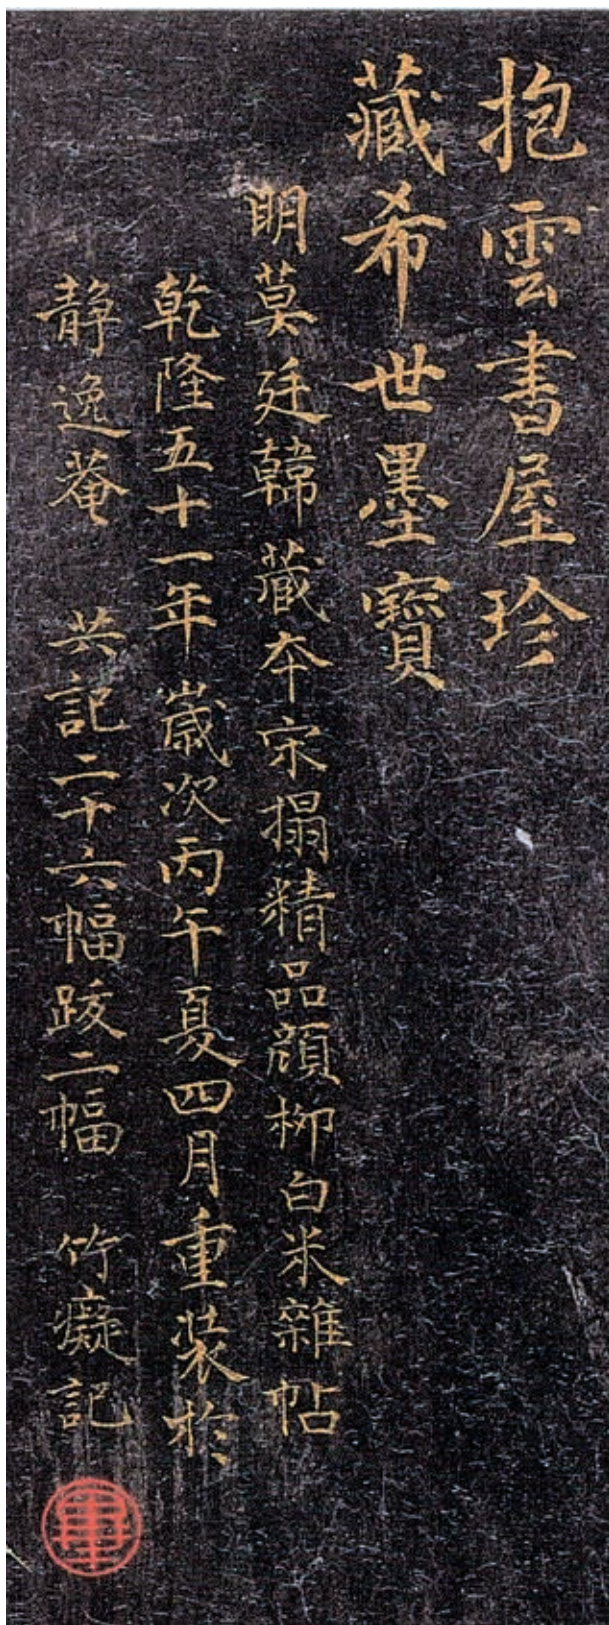 抱雲書屋珍
藏希世墨寶
明莫廷韓藏本宋搨精品顔柳白米雜帖
乾隆五十一年歲次丙午夏四月重装於
静逸菴 共記二十六幅跋二幅 竹癡記